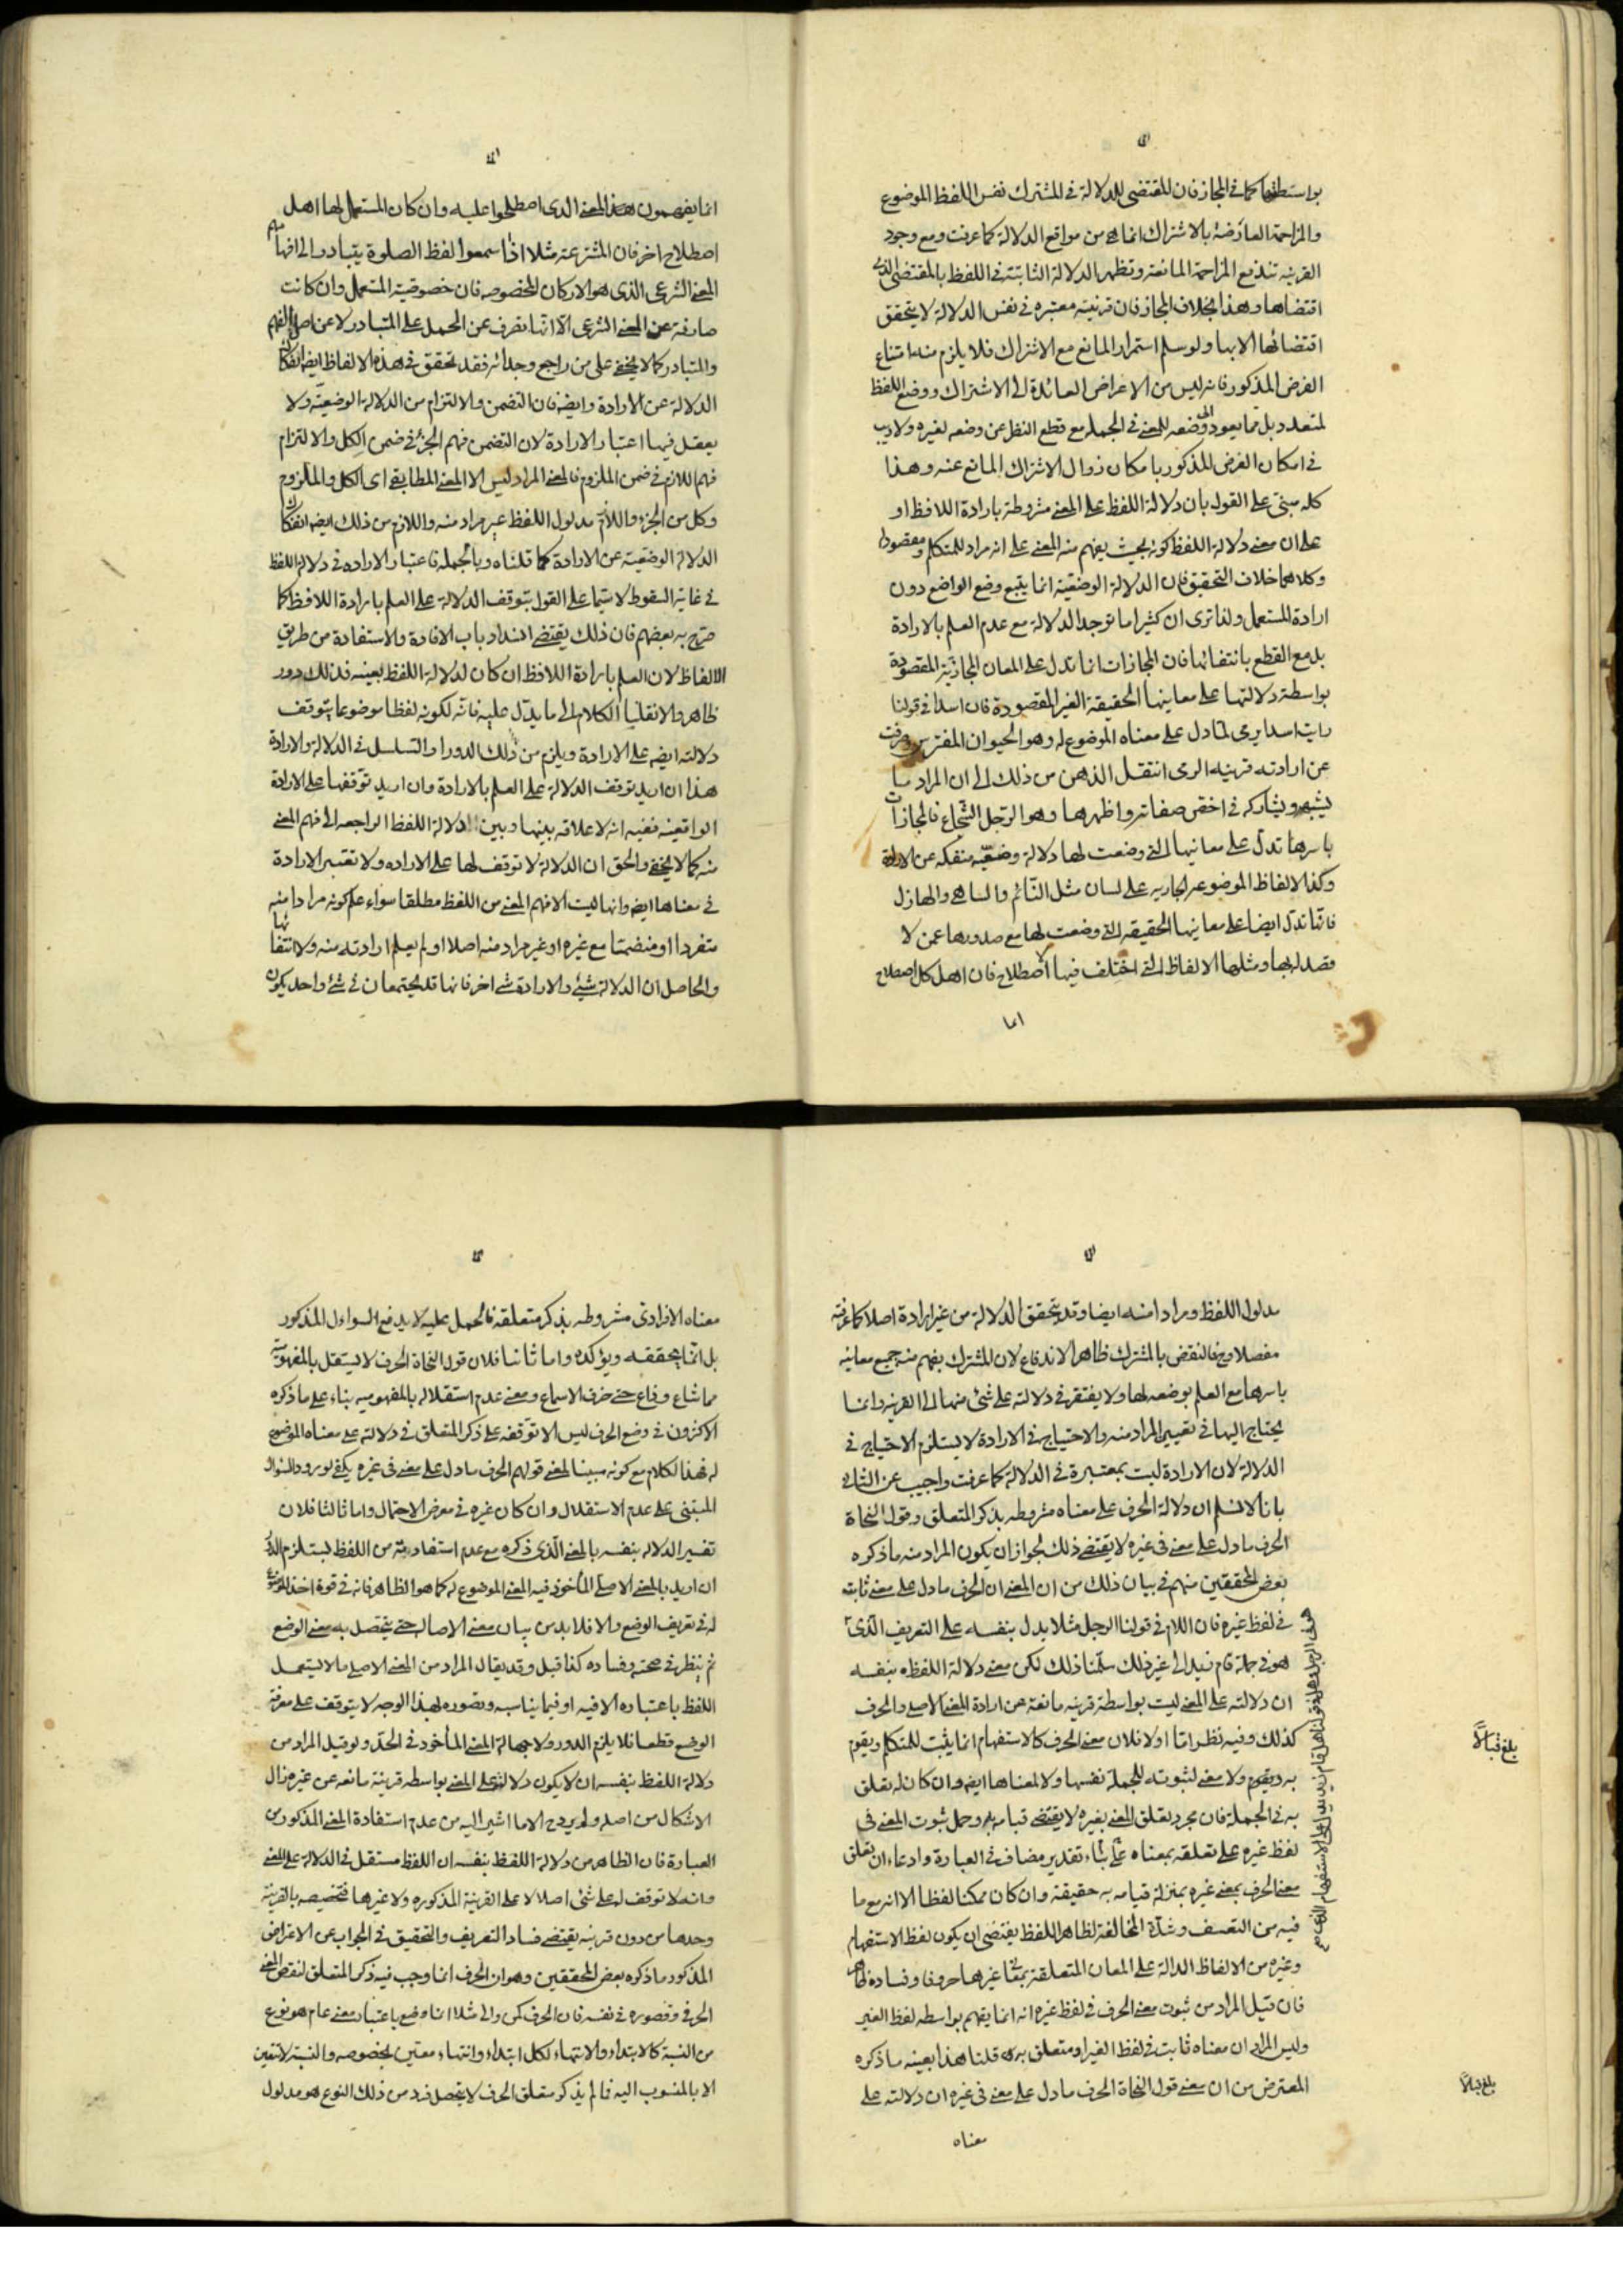 بواسطتها كما في المجاز فان المقتضى للدلالة في المشترك نفس اللفظ الموضوع
والمزاحمة العارضة بالاشتراك انما هي من مواقع الدلالة كما عرفت ومع وجود
القرينه تندفع المزاحمة المانعة وتظهر الدلالة الثابتة في اللفظ بالمقتضى الذي
اقتضاها وهذا بخلاف المجاز فان قرينته معتبره في نفس الدلالة لا يتحقق
اقتضائها الا بها ولو سلم استمرار المانع مع الاشتراك فلا يلزم منه امتناع
الفرض المذكور فانه ليس من الاعراض العائدة الى الاشتراك ووضع اللفظ
لمتعدد بل مما يعود الى وضعه للمعنى في الجملة مع قطع النظر عن وضعه لغيره ولا ريب
في امكان الفرض المذكور بامكان زوال الاشتراك المانع عنه وهذا
كله مبنى على القول بأن دلالة اللفظ على المعنى مشروطة بارادة اللافظ او
على ان معنى دلالة اللفظ كونه بحيث يفهم منه المعنى على انه مراد للمتكلم ومقصود له
وكلاهما خلاف التحقيق فان الدلالة الوضعية انما يتبع وضع الواضع دون
ارادة المستعمل ولذا ترى ان كثيرا ما توجد الدلالة مع عدم العلم بالارادة
بل مع القطع بانتفائها فان المجازات انما تدل على المعان المجازية المقصودة
بواسطة دلالتها على معانيها الحقيقة الغير المقصودة فان اسدا في قولنا
رايت اسدا يرمى لما دل على معناه الموضوع له وهو الحيوان المفترس وصرفت
عن ارادته قرينه الرمى انتقل الذهن من ذلك الى ان المراد ما
يشبهه ويشاركه في اخص صفاته واظهرها وهو الرجل الشجاع فالمجازات
باسرها تدل على معانيها التى وضعت لها دلالة وضعية منفكه عن الارادة
وكذا الالفاظ الموضوعه الجاريه على لسان مثل النائم والساهى والهازل
فانها تدل ايضا على معانيها الحقيقه التى وضعت لها مع صدورها عمن لا
قصد له بها ومثلها الالفاظ التى اختلف فيها الاصطلاح فان اهل كل اصطلاح
انما
انما يفهمون هذا المعنى الذى اصطلحوا عليه وان كان المستعمل لها اهل
اصطلاح اخر فان المتشرعة مثلا اذا سمعوا لفظ الصلوة يتبادر الى افهامهم
المعنى الشرعى الذى هو الاركان المخصوصه فان خصوصية المستعمل وان كانت
صارفة عن المعنى الشرعى الا انها تصرف عن الحمل على المتبادر لا عن اصل الفهم
والتبادر كما لا يخفى على من راجع وجدانه فقد تحقق في هذه الالفاظ ايضا انفكاك
الدلالة عن الارادة وايضا فان التضمن والالتزام من الدلالة الوضعية ولا
يعقل فيها اعتبار الارادة لان التضمن فهم الجزء في ضمن الكل والالتزام
فهم اللازم في ضمن الملزوم فالمعنى المراد ليس الا المعنى المطابقى اى الكل والملزوم
وكل من الجزء واللازم مدلول اللفظ غير مراد منه واللازم من ذلك ايضا انفكاك
الدلالة الوضعية عن الارادة كما قلناه وبالجملة فاعتبار الاراده في دلالة اللفظ
في غاية السقوط لا سيما على القول بتوقف الدلالة على العلم بارادة اللافظ كما
صرح به بعضهم فان ذلك يقتضى انسداد باب الافادة والاستفادة من طريق
الالفاظ لان العلم بارادة اللافظ ان كان لدلالة اللفظ بعينه فذلك دور
ظاهر والا نقلنا الكلام الى ما يدل عليه فانه لكونه لفظا موضوعا يتوقف
دلالته ايضا على الارادة ويلزم من ذلك الدور او التسلسل في الدلالة والارادة
هذا ان اريد توقف الدلالة على العلم بالارادة وان اريد توقفها على الارادة
الواقعية ففيه انه لا علاقه بينها وبين دلالة اللفظ الراجعه الى فهم المعنى
منه كما لا يخفى والحق ان الدلالة لا توقف لها على الاراده ولا تعتبر الارادة
في معناها ايضا وانها ليست الا فهم المعنى من اللفظ مطلقا سواء علم كونه مرادا منه
متفردا او منضما مع غيره او غير مراد منه اصلا او لم يعلم ارادته منه ولا انتفائها
والحاصل ان الدلالة شئ والارادة شئ اخر فانهما قد يجتمعان في شئ واحد يكون
مدلول اللفظ ومرادا منه ايضا وقد يتحقق الدلالة من غير ارادة اصلا كما عرفته
مفصلا وح فالنقض بالمشترك ظاهر الاندفاع لان المشترك يفهم منه جميع معانيه
باسرها مع العلم بوضعه لها ولا يفتقر في دلالته على شئ منها الى القرينه وانما
يحتاج اليها في تعيين المراد منه والاحتياج في الارادة لا يستلزم الاحتياج في
الدلالة لان الارادة ليست بمعتبرة في الدلالة كما عرفت واجيب عن الثانى
بانا لا نسلم ان دلالة الحرف على معناه مشروطه بذكر المتعلق وقول النحاة
الحرف ما دل على معنى في غيره لا يقتضى ذلك لجواز ان يكون المراد منه ما ذكره
بعض المحققين منهم في بيان ذلك من ان المعنى ان الحرف ما دل على معنى ثابت
في لفظ غيره فان اللام في قولنا الرجل مثلا يدل بنفسه على التعريف الذى
هو في جملة قام زيد الى غير ذلك سلمنا ذلك لكن معنى دلالة اللفظه بنفسه
ان دلالته على المعنى ليست بواسطة قرينه مانعة عن ارادة المعنى الاصلى والحرف
كذلك وفيه نظر اما اولا فلان معنى الحرف كالاستفهام انما يثبت للمتكلم ويقوم
به ويقوم ولا معنى لثبوته للجملة نفسها ولا لمعناها ايضا وان كان له تعلق
به في الجملة فان مجرد تعلق المعنى بغيره لا يقتضى قيامه به وحمل ثبوت المعنى في
لفظ غيره على تعلقه بمعناه على بناء تقدير مضاف في العبارة وادعاء ان تعلق
معنى الحرف بمعنى غيره بمنزلة قيامه به حقيقة وان كان ممكنا لفظا الا انه مع ما
فيه من التعسف وشدة المخالفة لظاهر اللفظ يقتضى ان يكون لفظ الاستفهام
وغيره من الالفاظ الدالة على المعان المتعلقة بمعانى غيرها حروفا وفساده ظاهر
فان قيل المراد من ثبوت معنى الحرف في لفظ غيره انه انما يفهم بواسطه لفظ الغير
وليس المراد ان معناه ثابت في لفظ الغير او متعلق به قلنا هذا بعينه ما ذكره
المعترض من ان معنى قول النحاة الحرف ما دل على معنى في غيره ان دلالته على
معناه
بلغ قبالا
بلغ قبالا
معناه الافرادى مشروطه بذكر متعلقه فالحمل عليه لا يدفع السوال المذكور
بل انما يحققه ويؤكده واما ثانيا فلان قول النحاة الحرف لا يستقل بالمفهومية
مما شاع وذاع حتى خرق الاسماع ومعنى عدم استقلاله بالمفهوميه بناء على ما ذكره
الاكثرون في وضع الحرف ليس الا توقفه على ذكر المتعلق في دلالته على معناه الموضوع
له فهذا الكلام مع كونه مبينا لمعنى قولهم الحرف ما دل على معنى في غيره يكفى لورود السؤال
المبتنى على عدم الاستقلال وان كان غيره في معرض الاحتمال واما ثالثا فلان
تفسير الدلاله بنفسه بالمعنى الذى ذكره مع عدم استفادته من اللفظ يستلزم الدور
ان اريد بالمعنى الاصلى المأخوذ فيه المعنى الموضوع له كما هو الظاهر فانه في قوة اخذ الموضوع
له في تعريف الوضع والا فلا بد من بيان معنى الاصالة حتى يتحصل به معنى الوضع
ثم ينظر في صحته وفساده كذا قيل وقد يقال المراد من المعنى الاصلى ما لا يستعمل
اللفظ باعتباره الا فيه او فيما يناسبه وتصوره بهذا الوجه لا يتوقف على معرفة
الوضع قطعا فلا يلزم الدور ولا جهالة المعنى المأخوذ في الحد ولو قيل المراد من
دلالة اللفظ بنفسه ان لا يكون دلالته على المعنى بواسطه قرينة مانعه عن غيره زال
الاشكال من اصله ولم يرد ح الا ما اشير اليه من عدم استفادة المعنى المذكور من
العبارة فان الظاهر من دلالة اللفظ بنفسه ان اللفظ مستقل في الدلالة على المعنى
وانه لا توقف له على شئ اصلا لا على القرينة المذكوره ولا غيرها فتخصيصه بالقرينة
وحدها من دون قرينه يقتضى فساد التعريف والتحقيق في الجواب عن الاعتراض
المذكور ما ذكره بعض المحققين وهو ان الحرف انما وجب فيه ذكر المتعلق لنقص المعنى
الحرفى وقصوره في نفسه فان الحرف كمن والى مثلا انما وضع باعتبار معنى عام هو نوع
من النسبة كالابتداء والانتهاء لكل ابتداء وانتهاء معين بخصوصه والنسبة لا تتعين
الا بالمنسوب اليه فما لم يذكر متعلق الحرف لا يتحصل فرد من ذلك النوع هو مدلول